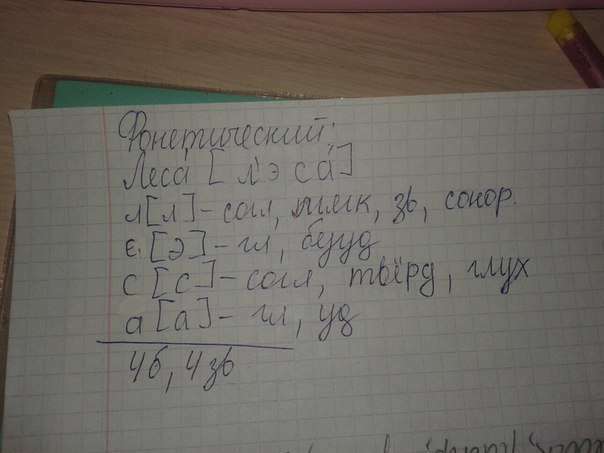 Фонетический:
Леса́ [л'эса́]
л [л] – согл, мягк, зв, сонор.
е [э] – гл, безуд
с [с] – согл, твёрд, глух
а [а] – гл, уд
4б, 4зв